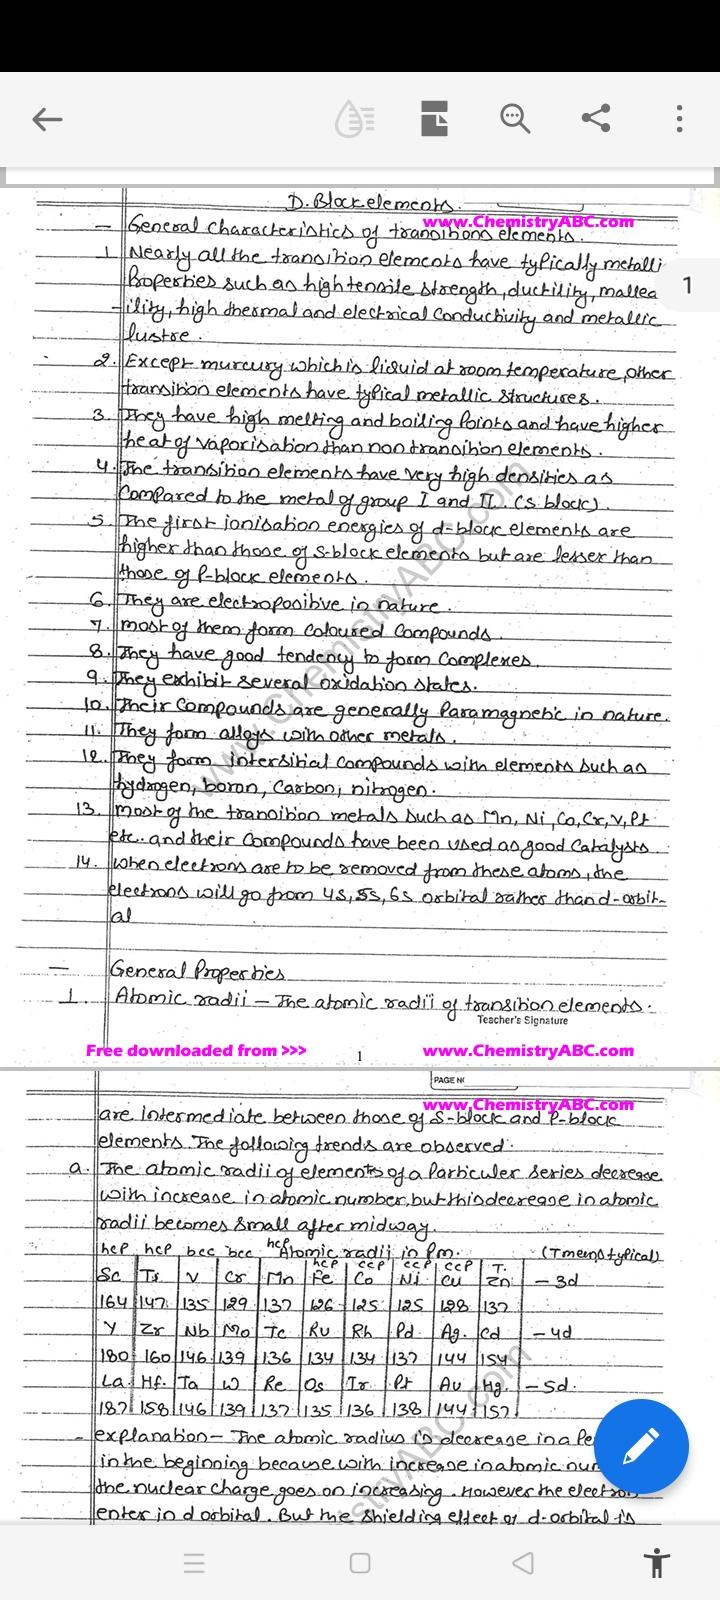 D. Block elements.
www.ChemistryABC.com
- General characteristics of transitions elements.
1. Nearly all the transition elements have typically metalli
Properties such as high tensile strength, ductility, mallea
-ility, high thermal and electrical conductivity and metallic
lustre.
1
2. Except murcury which is liquid at room temperature, other
transition elements have typical metallic structures.
3. They have high melting and boiling Points and have higher
heat of vaporisation than non transition elements.
4. The transition elements have very high densities as
Compared to the metal of group I and II. (S block).
5. The first ionisation energies of d-block elements are
higher than those of S-block elements but are lesser than
those of P-block elements.
6. They are electropositive in nature.
7. most of them form coloured compounds.
8. They have good tendency to form complexes.
9. They exhibit several oxidation states.
10. Their compounds are generally Paramagnetic in nature.
11. They form alloys with other metals.
12. They form intersitial compounds with elements such as
hydrogen, boron, carbon, nitrogen.
13. most of the transition metals such as Mn, Ni, Co, Cr, V, Pt
etc. and their compounds have been used as good catalysts
14. when electrons are to be removed from these atoms, the
electrons will go from 4s, 5s, 6s orbital rather than d-orbit-
al
www.ChemistryABC.com
- General Properties
1. Atomic radii - The atomic radii of transition elements.
Teacher's Signature
Free downloaded from >>> 1 www.ChemistryABC.com
PAGE N
www.ChemistryABC.com
are intermediate between those of S-block and P-block
elements. The following trends are observed.
a. The atomic radii of elements of a Particuler series decrease
with increase in atomic number, but this decrease in atomic
radii becomes small after midway.
hcp hcp bcc bcc hcp Atomic radii in Pm. (T means typical)
hcp ccp ccp ccp T.
Sc V Cr Mn Fe Co Ni Cu Zn - 3d
164 147 135 129 137 126 125 125 128 137
Y Zr Nb Mo Tc Ru Rh Pd Ag. Cd - 4d
180 160 146 139 136 134 134 137 144 154
La Hf. Ta W Re Os Ir Pt Au Hg. - 5d.
187 158 146 139 137 135 136 138 144 157
- explanation - The atomic radius is decrease in a Pe
in the beginning because with increase in atomic num
the nuclear charge goes on increasing. However the electron
enter in d orbital. But the shielding effect of d-orbital is